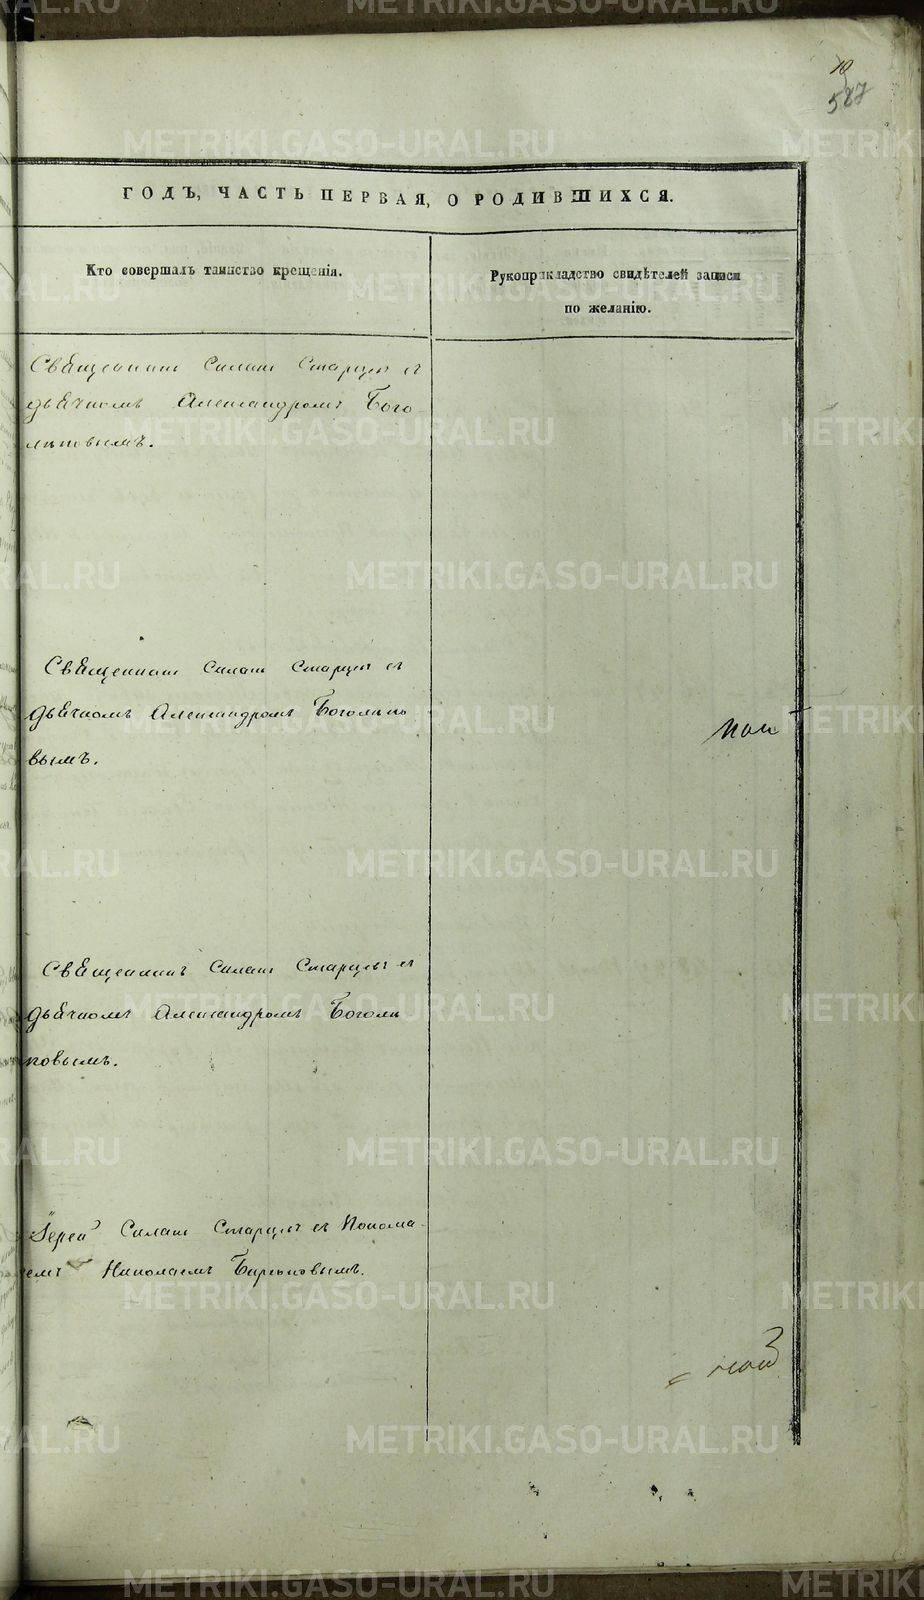 10
587
ГОДЪ, ЧАСТЬ ПЕРВАЯ, О РОДИВШИХСЯ.
Кто совершалъ таинство крещенія.
Рукоприкладство свидѣтелей записи
по желанію.
Священник Силат Старцев съ
дьячкомъ Александромъ Бого
лѣповымъ.
Священник Силат Старцев съ
дьячкомъ Александромъ Боголѣпо
вымъ.
Священник Силат Старцев съ
дьячкомъ Александромъ Боголѣ
повымъ.
Іерей Силат Старцев съ Понома
ремъ Николаемъ
METRIKI.GASO-URAL.RU